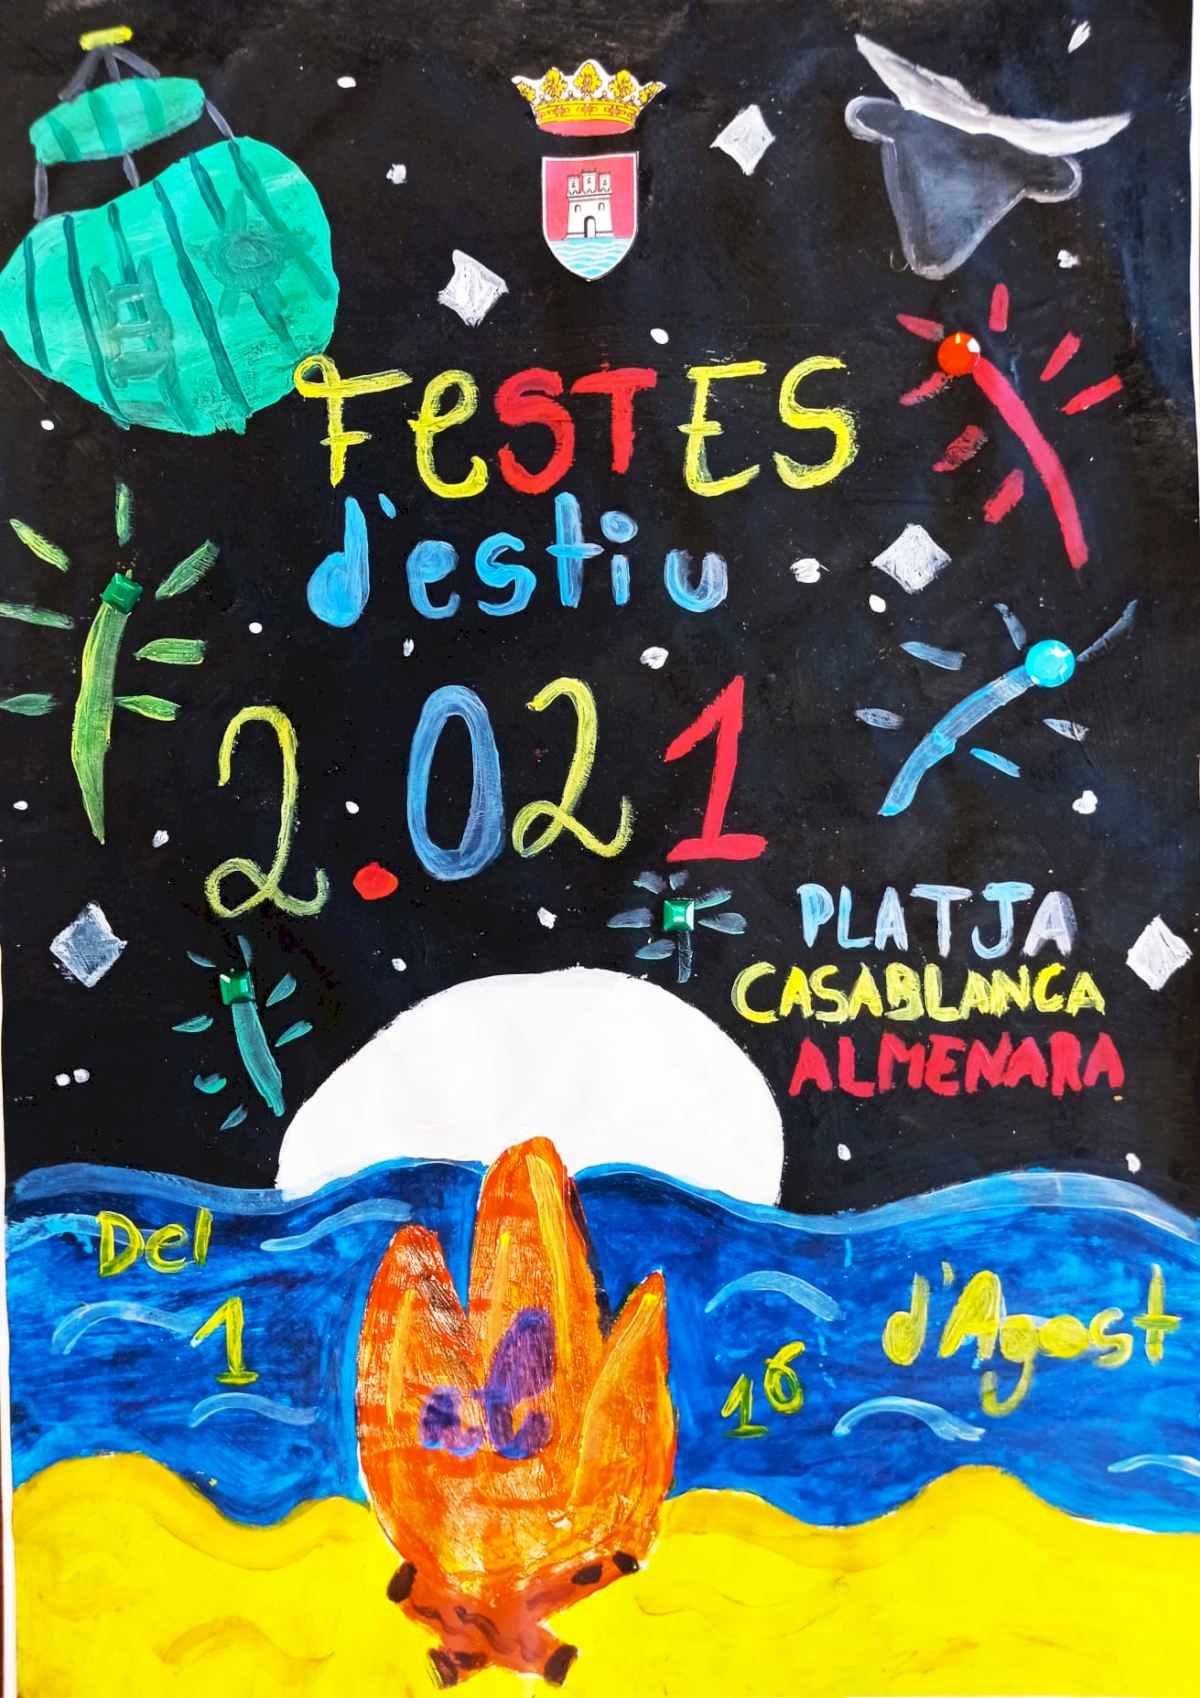 FeSTES
d'estiu
2.021
PLATJA
CASABLANCA
ALMENARA
Del
1
al
16
d'Agost